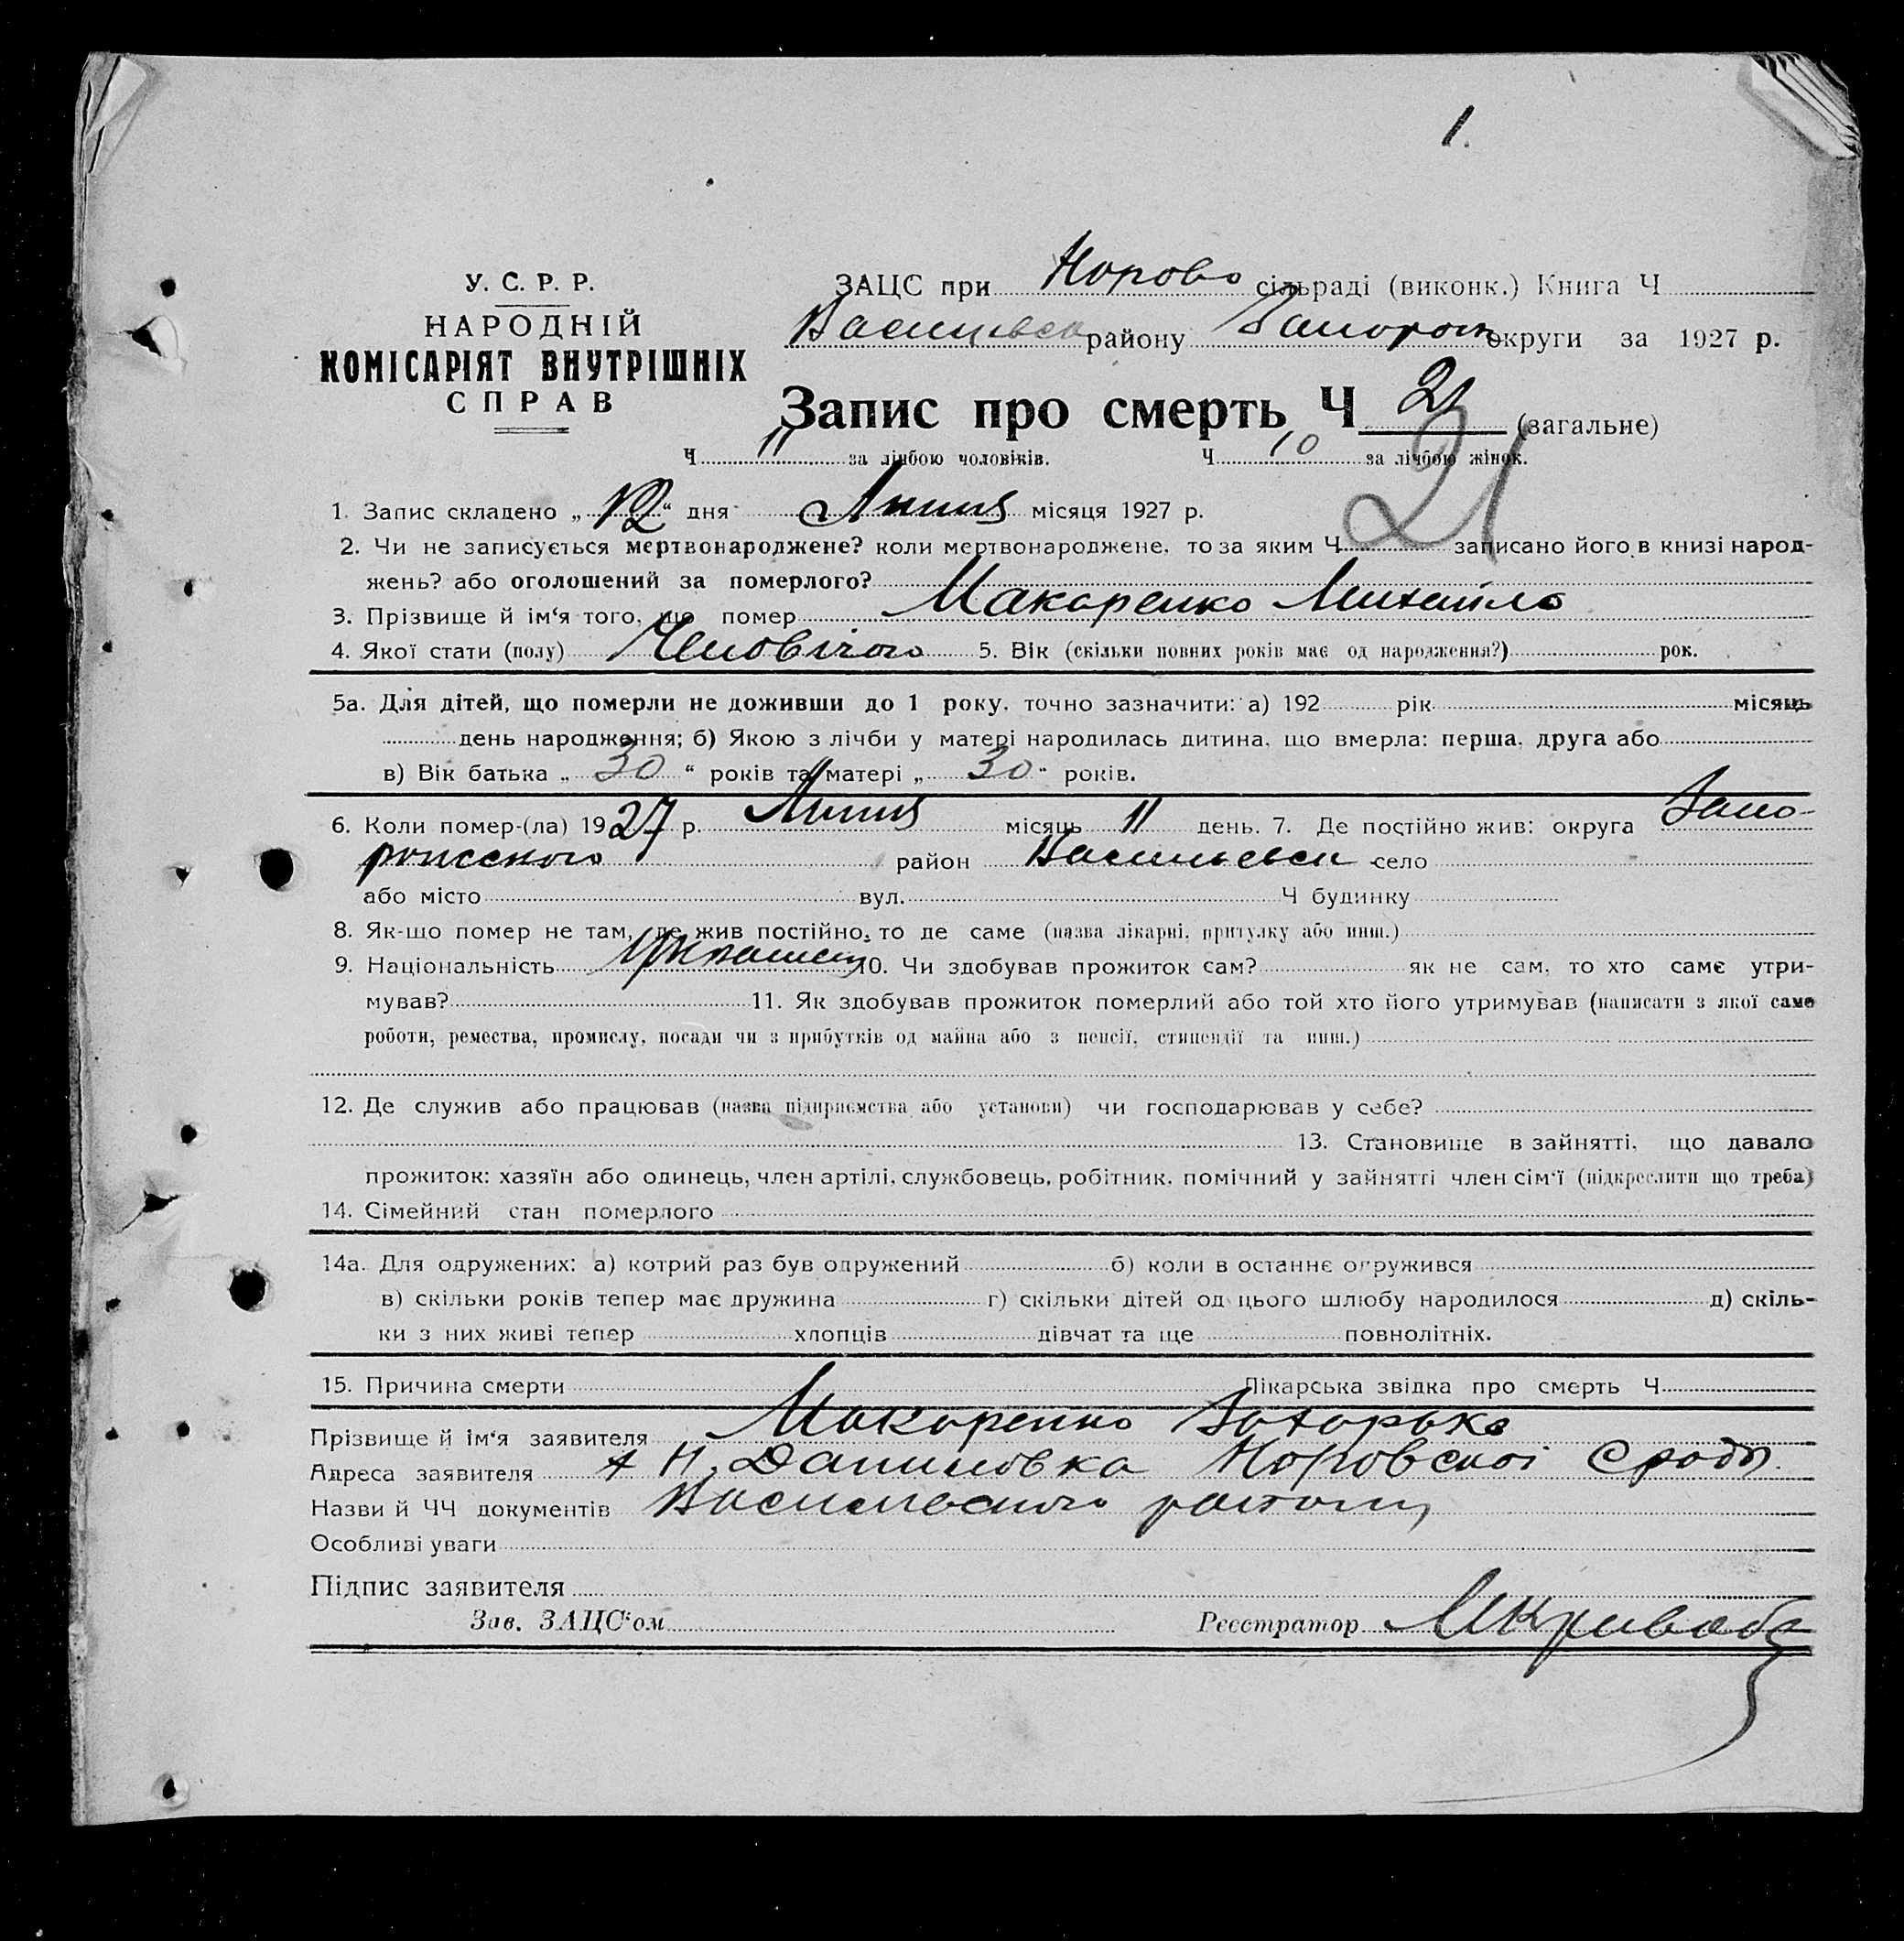 1.
У. С. Р. Р.
НАРОДНІЙ
КОМІСАРІЯТ ВНУТРІШНІХ
СПРАВ
ЗАЦС при сільраді (виконк.) Книга Ч
району округи за 1927 р.
Запис про смерть Ч 21 (загальне)
21
Ч 11 за лічбою чоловіків. Ч 10 за лічбою жінок.
1. Запис складено „ 12 “ дня Липня місяця 1927 р.
2. Чи не записується мертвонароджене? коли мертвонароджене, то за яким Ч записано його в книзі народ-
жень? або оголошений за померлого?
3. Прізвище й ім‘я того, що помер Макаренко Михайло
4. Якої стати (полу) 5. Вік (скільки повних років має од народження?) рок.
5а. Для дітей, що померли не доживши до 1 року, точно зазначити: а) 192 рік місяць
день народження; б) Якою з лічби у матері народилась дитина, що вмерла: перша, друга або
в) Вік батька „ 30 “ років та матері „ 30 “ років.
6. Коли помер-(ла) 1927 р. Липня місяць 11 день. 7. Де постійно жив: округа Запо-
район село
або місто вул. Ч будинку
8. Як-що помер не там, де жив постійно, то де саме (назва лікарні, притулку або инш.)
9. Національність 10. Чи здобував прожиток сам? як не сам, то хто саме утри-
мував? 11. Як здобував прожиток померлий або той хто його утримував (написати з якої саме
роботи, ремества, промислу, посади чи з прибутків од майна або з пенсії, стипендії та инш.)
12. Де служив або працював (назва підприємства або установи) чи господарював у себе?
13. Становище в зайнятті, що давало
прожиток: хазяїн або одинець, член артілі, службовець, робітник, помічний у зайнятті член сім‘ї (підкреслити що треба)
14. Сімейний стан померлого
14а. Для одружених: а) котрий раз був одружений б) коли в останнє одружився
в) скільки років тепер має дружина г) скільки дітей од цього шлюбу народилося д) скіль-
ки з них живі тепер хлопців дівчат та ще повнолітніх.
15. Причина смерти Лікарська звідка про смерть Ч
Прізвище й ім‘я заявителя Макаренко
Адреса заявителя Н. Даниловка
Назви й ЧЧ документів
Особливі уваги
Підпис заявителя
Зав. ЗАЦС‘ом Реєстратор